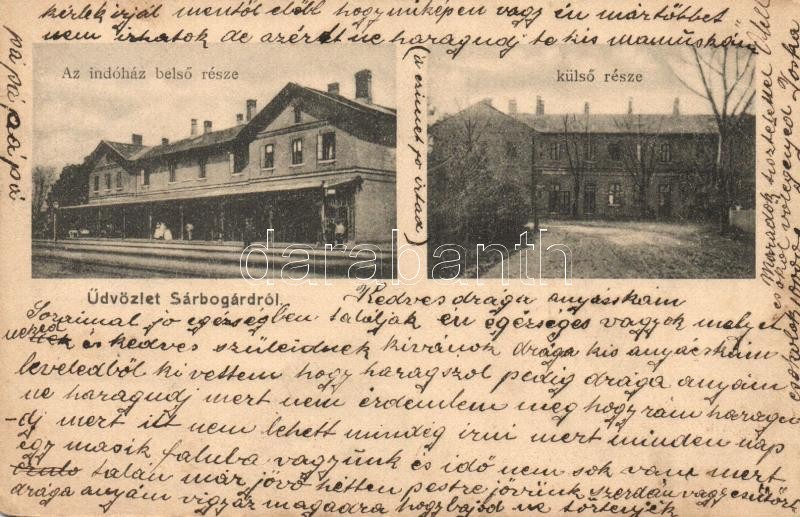 kérlek írjál mentől előbb hogy miképen vagy én mártöbbet
nem írhatok de azért ne haragudj te kis mamuskám
pá pá, pápá
Az indóház belső része
külső része
(a czimet jo irtad)
darabanth
Üdvözlet Sárbogárdról.
Kedves drága anyáskám
Soraimal jo egéségben találjak én egézséges vagyok melyet
neked és kedves szüleidnek kivánok drága kis anyácskám
leveledből kivettem hogy haragszol pedig drága anyám
ne haragudj mert nem érdemlem meg hogy rám haragu
-dj mert itt nem lehett mindég irni mert minden nap
egy masik faluba vagyunk és idő nem sok van mert
talán már jövő hétten pestre jövünk szerdán vagy csütört
drága anyám vigyáz magadra hogy bajod ne történjék
Maradok tisztelettel
és őkal vőlegényed Joska
csokollak 1000